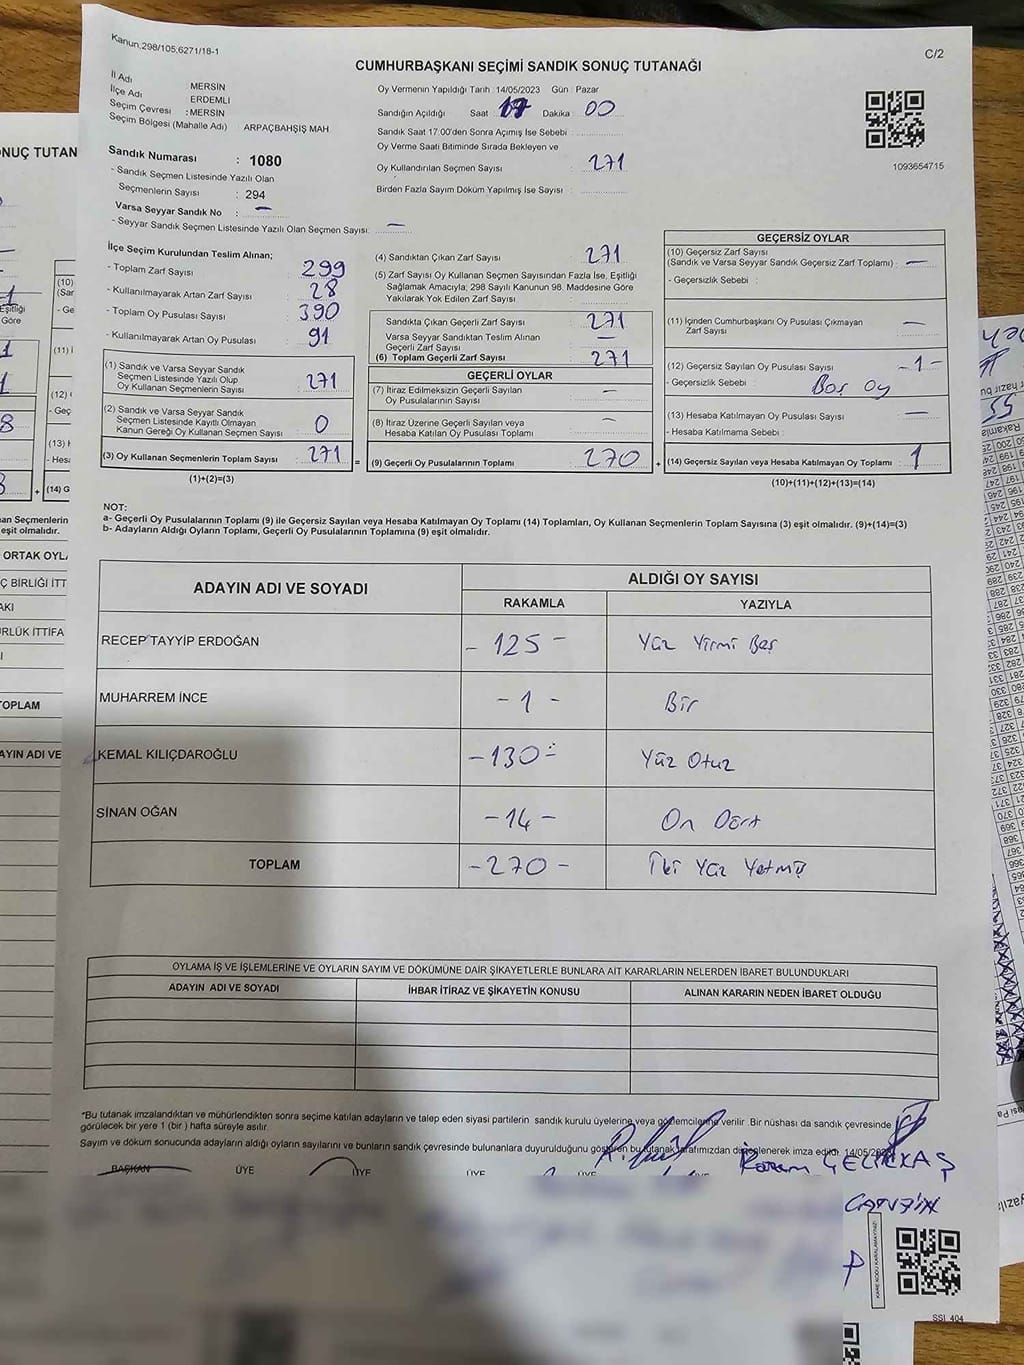 Kanun,298/105,6271/18-1
C/2
CUMHURBAŞKANI SEÇİMİ SANDIK SONUÇ TUTANAĞI
İl Adı MERSİN
İlçe Adı ERDEMLİ
Seçim Çevresi : MERSİN
Seçim Bölgesi (Mahalle Adı) ARPAÇBAHŞİŞ MAH.
Sandık Numarası : 1080
- Sandık Seçmen Listesinde Yazılı Olan
Seçmenlerin Sayısı : 294
Varsa Seyyar Sandık No : —
- Seyyar Sandık Seçmen Listesinde Yazılı Olan Seçmen Sayısı: —
Oy Vermenin Yapıldığı Tarih : 14/05/2023 Gün : Pazar
Sandığın Açıldığı Saat 17 Dakika : 00
Sandık Saat 17:00'den Sonra Açımış İse Sebebi :
Oy Verme Saati Bitiminde Sırada Bekleyen ve
Oy Kullandırılan Seçmen Sayısı : 271
Birden Fazla Sayım Döküm Yapılmış İse Sayısı :
1093654715
İlçe Seçim Kurulundan Teslim Alınan;
- Toplam Zarf Sayısı : 299
- Kullanılmayarak Artan Zarf Sayısı : 28
- Toplam Oy Pusulası Sayısı : 390
- Kullanılmayarak Artan Oy Pusulası : 91
(1) Sandık ve Varsa Seyyar Sandık
Seçmen Listesinde Yazılı Olup
Oy Kullanan Seçmenlerin Sayısı : 271
(2) Sandık ve Varsa Seyyar Sandık
Seçmen Listesinde Kayıtlı Olmayan
Kanun Gereği Oy Kullanan Seçmen Sayısı : 0
(3) Oy Kullanan Seçmenlerin Toplam Sayısı : 271
(1)+(2)=(3)
(4) Sandıktan Çıkan Zarf Sayısı : 271
(5) Zarf Sayısı Oy Kullanan Seçmen Sayısından Fazla İse, Eşitliği
Sağlamak Amacıyla; 298 Sayılı Kanunun 98. Maddesine Göre
Yakılarak Yok Edilen Zarf Sayısı :
Sandıkta Çıkan Geçerli Zarf Sayısı : 271
Varsa Seyyar Sandıktan Teslim Alınan
Geçerli Zarf Sayısı : —
(6) Toplam Geçerli Zarf Sayısı : 271
GEÇERLİ OYLAR
(7) İtiraz Edilmeksizin Geçerli Sayılan
Oy Pusulalarının Sayısı : —
(8) İtiraz Üzerine Geçerli Sayılan veya
Hesaba Katılan Oy Pusulası Toplamı : —
= (9) Geçerli Oy Pusulalarının Toplamı : 270 +
GEÇERSİZ OYLAR
(10) Geçersiz Zarf Sayısı
(Sandık ve Varsa Seyyar Sandık Geçersiz Zarf Toplamı) : —
- Geçersizlik Sebebi :
(11) İçinden Cumhurbaşkanı Oy Pusulası Çıkmayan
Zarf Sayısı : —
(12) Geçersiz Sayılan Oy Pusulası Sayısı : -1-
- Geçersizlik Sebebi : Boş oy
(13) Hesaba Katılmayan Oy Pusulası Sayısı : —
- Hesaba Katılmama Sebebi :
(14) Geçersiz Sayılan veya Hesaba Katılmayan Oy Toplamı : 1
(10)+(11)+(12)+(13)=(14)
NOT:
a- Geçerli Oy Pusulalarının Toplamı (9) ile Geçersiz Sayılan veya Hesaba Katılmayan Oy Toplamı (14) Toplamları, Oy Kullanan Seçmenlerin Toplam Sayısına (3) eşit olmalıdır. (9)+(14)=(3)
b- Adayların Aldığı Oyların Toplamı, Geçerli Oy Pusulalarının Toplamına (9) eşit olmalıdır.
ADAYIN ADI VE SOYADI ALDIĞI OY SAYISI
RAKAMLA YAZIYLA
RECEP TAYYİP ERDOĞAN - 125 - Yüz Yirmi Beş
MUHARREM İNCE - 1 - Bir
KEMAL KILIÇDAROĞLU - 130 - Yüz Otuz
SİNAN OĞAN - 14 - On Dört
TOPLAM - 270 - İki Yüz Yetmiş
OYLAMA İŞ VE İŞLEMLERİNE VE OYLARIN SAYIM VE DÖKÜMÜNE DAİR ŞİKAYETLERLE BUNLARA AİT KARARLARIN NELERDEN İBARET BULUNDUKLARI
ADAYIN ADI VE SOYADI İHBAR İTİRAZ VE ŞİKAYETİN KONUSU ALINAN KARARIN NEDEN İBARET OLDUĞU
*Bu tutanak imzalandıktan ve mühürlendikten sonra seçime katılan adayların ve talep eden siyasi partilerin sandık kurulu üyelerine veya gözlemcilerine verilir .Bir nüshası da sandık çevresinde
görülecek bir yere 1 (bir ) hafta süreyle asılır.
Sayım ve döküm sonucunda adayların aldığı oyların sayılarını ve bunların sandık çevresinde bulunanlara duyurulduğunu gösteren bu tutanak tarafımızdan düzenlenerek imza edildi. 14/05/2023
BAŞKAN ÜYE ÜYE ÜYE ÜYE
KARE KODU KARALAMAYINIZ!
SSI 404